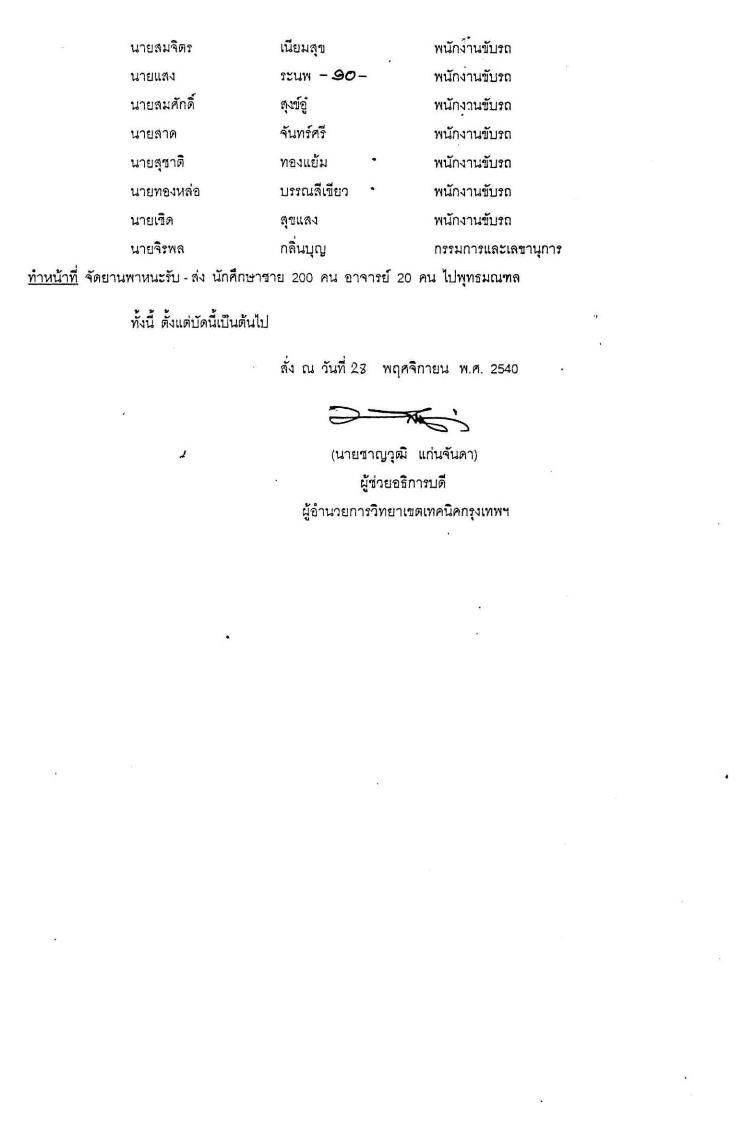 นายสมจิตร เนียมสุข พนักงานขับรถ
นายแสง ระนพ -๑๐- พนักงานขับรถ
นายสมศักดิ์ สุงข์อู๋ พนักงานขับรถ
นายลาด จันทร์ศรี พนักงานขับรถ
นายสุชาติ ทองแย้ม พนักงานขับรถ
นายทองหล่อ บรรณสีเขียว พนักงานขับรถ
นายเชิด สุขแสง พนักงานขับรถ
นายจิรพล กลิ่นบุญ กรรมการและเลขานุการ
ทำหน้าที่ จัดยานพาหนะรับ - ส่ง นักศึกษาชาย 200 คน อาจารย์ 20 คน ไปพุทธมณฑล
ทั้งนี้ ตั้งแต่บัดนี้เป็นต้นไป
สั่ง ณ วันที่ 28 พฤศจิกายน พ.ศ. 2540
(นายชาญวุฒิ แก่นจันดา)
ผู้ช่วยอธิการบดี
ผู้อำนวยการวิทยาเขตเทคนิคกรุงเทพฯ